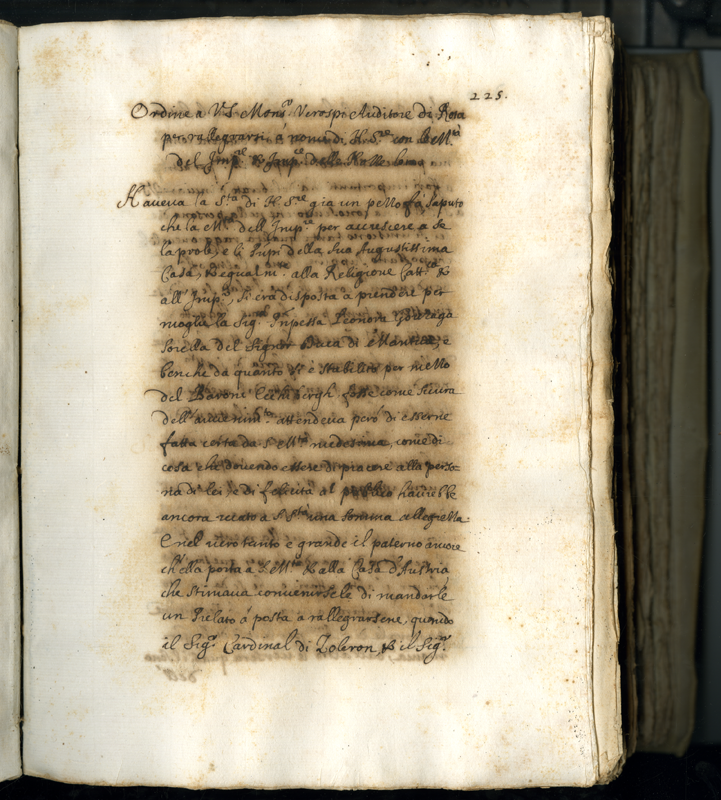 225.
Ordine a V.S. Monsr. Verospi Auditore di Rota
per rallegrarsi, à nome di N. Sre. con le Mtà
del Impre. & Impce. delle Nozze loro
Haveva la Stà. di N. Sre. già un pezzo fà saputo
che la Mtà. dell'Impre. per accrescere a se
la prole, e li Impi della sua Augustissima
Casa, & equalmte. alla Religione Cattca. &
all'Impo., si era disposta à prendere per
moglie la Sigra. Inpessa Leonora Gonzaga
sorella del Signor Duca di Mantova, e
benche da quanto si è stabilito per mezzo
del Barone Ecchibergh fosse come sicura
dell'avvenimto. attendeva però di esserne
fatta certa da S. Mtà medesima, come di
cosa che dovendo essere di piacere alla perso-
na di lei, e di felicità al publico havrebbe
ancora recato a S. Stà una somma allegrezza
E nel vero tanto è grande il paterno amore
ch'ella porta a S. Mtà & alla Casa d'Austria
che stimava convenirsele di mandarle
un Prelato à posta a rallegrarsene, quando
il Sigr. Cardinal di Zoleron & il Sigr.